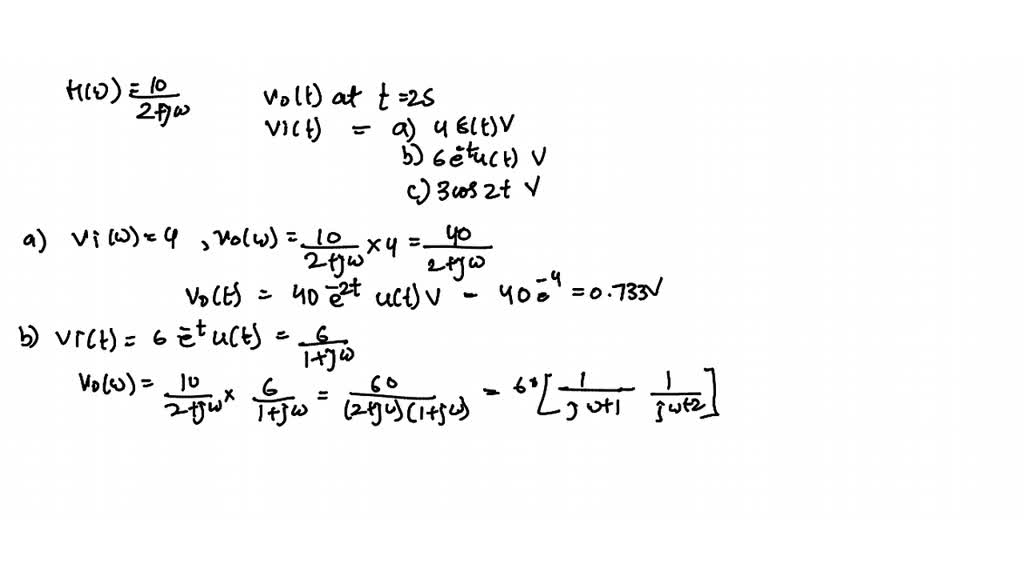 H(ω) = 10/(2+jω) vo(t) at t=2S
vi(t) = a) 4 δ(t) V
b) 6e^-t u(t) V
c) 3cos 2t V
a) Vi(ω) = 4 , Vo(ω) = 10/(2+jω) × 4 = 40/(2+jω)
Vo(t) = 40 e^-2t u(t) V - 40 e^-4 = 0.733V
b) Vi(t) = 6 e^-t u(t) = 6/(1+jω)
Vo(ω) = 10/(2+jω) × 6/(1+jω) = 60/((2+jω)(1+jω)) = 60 [ 1/(jω+1) 1/(jω+2) ]